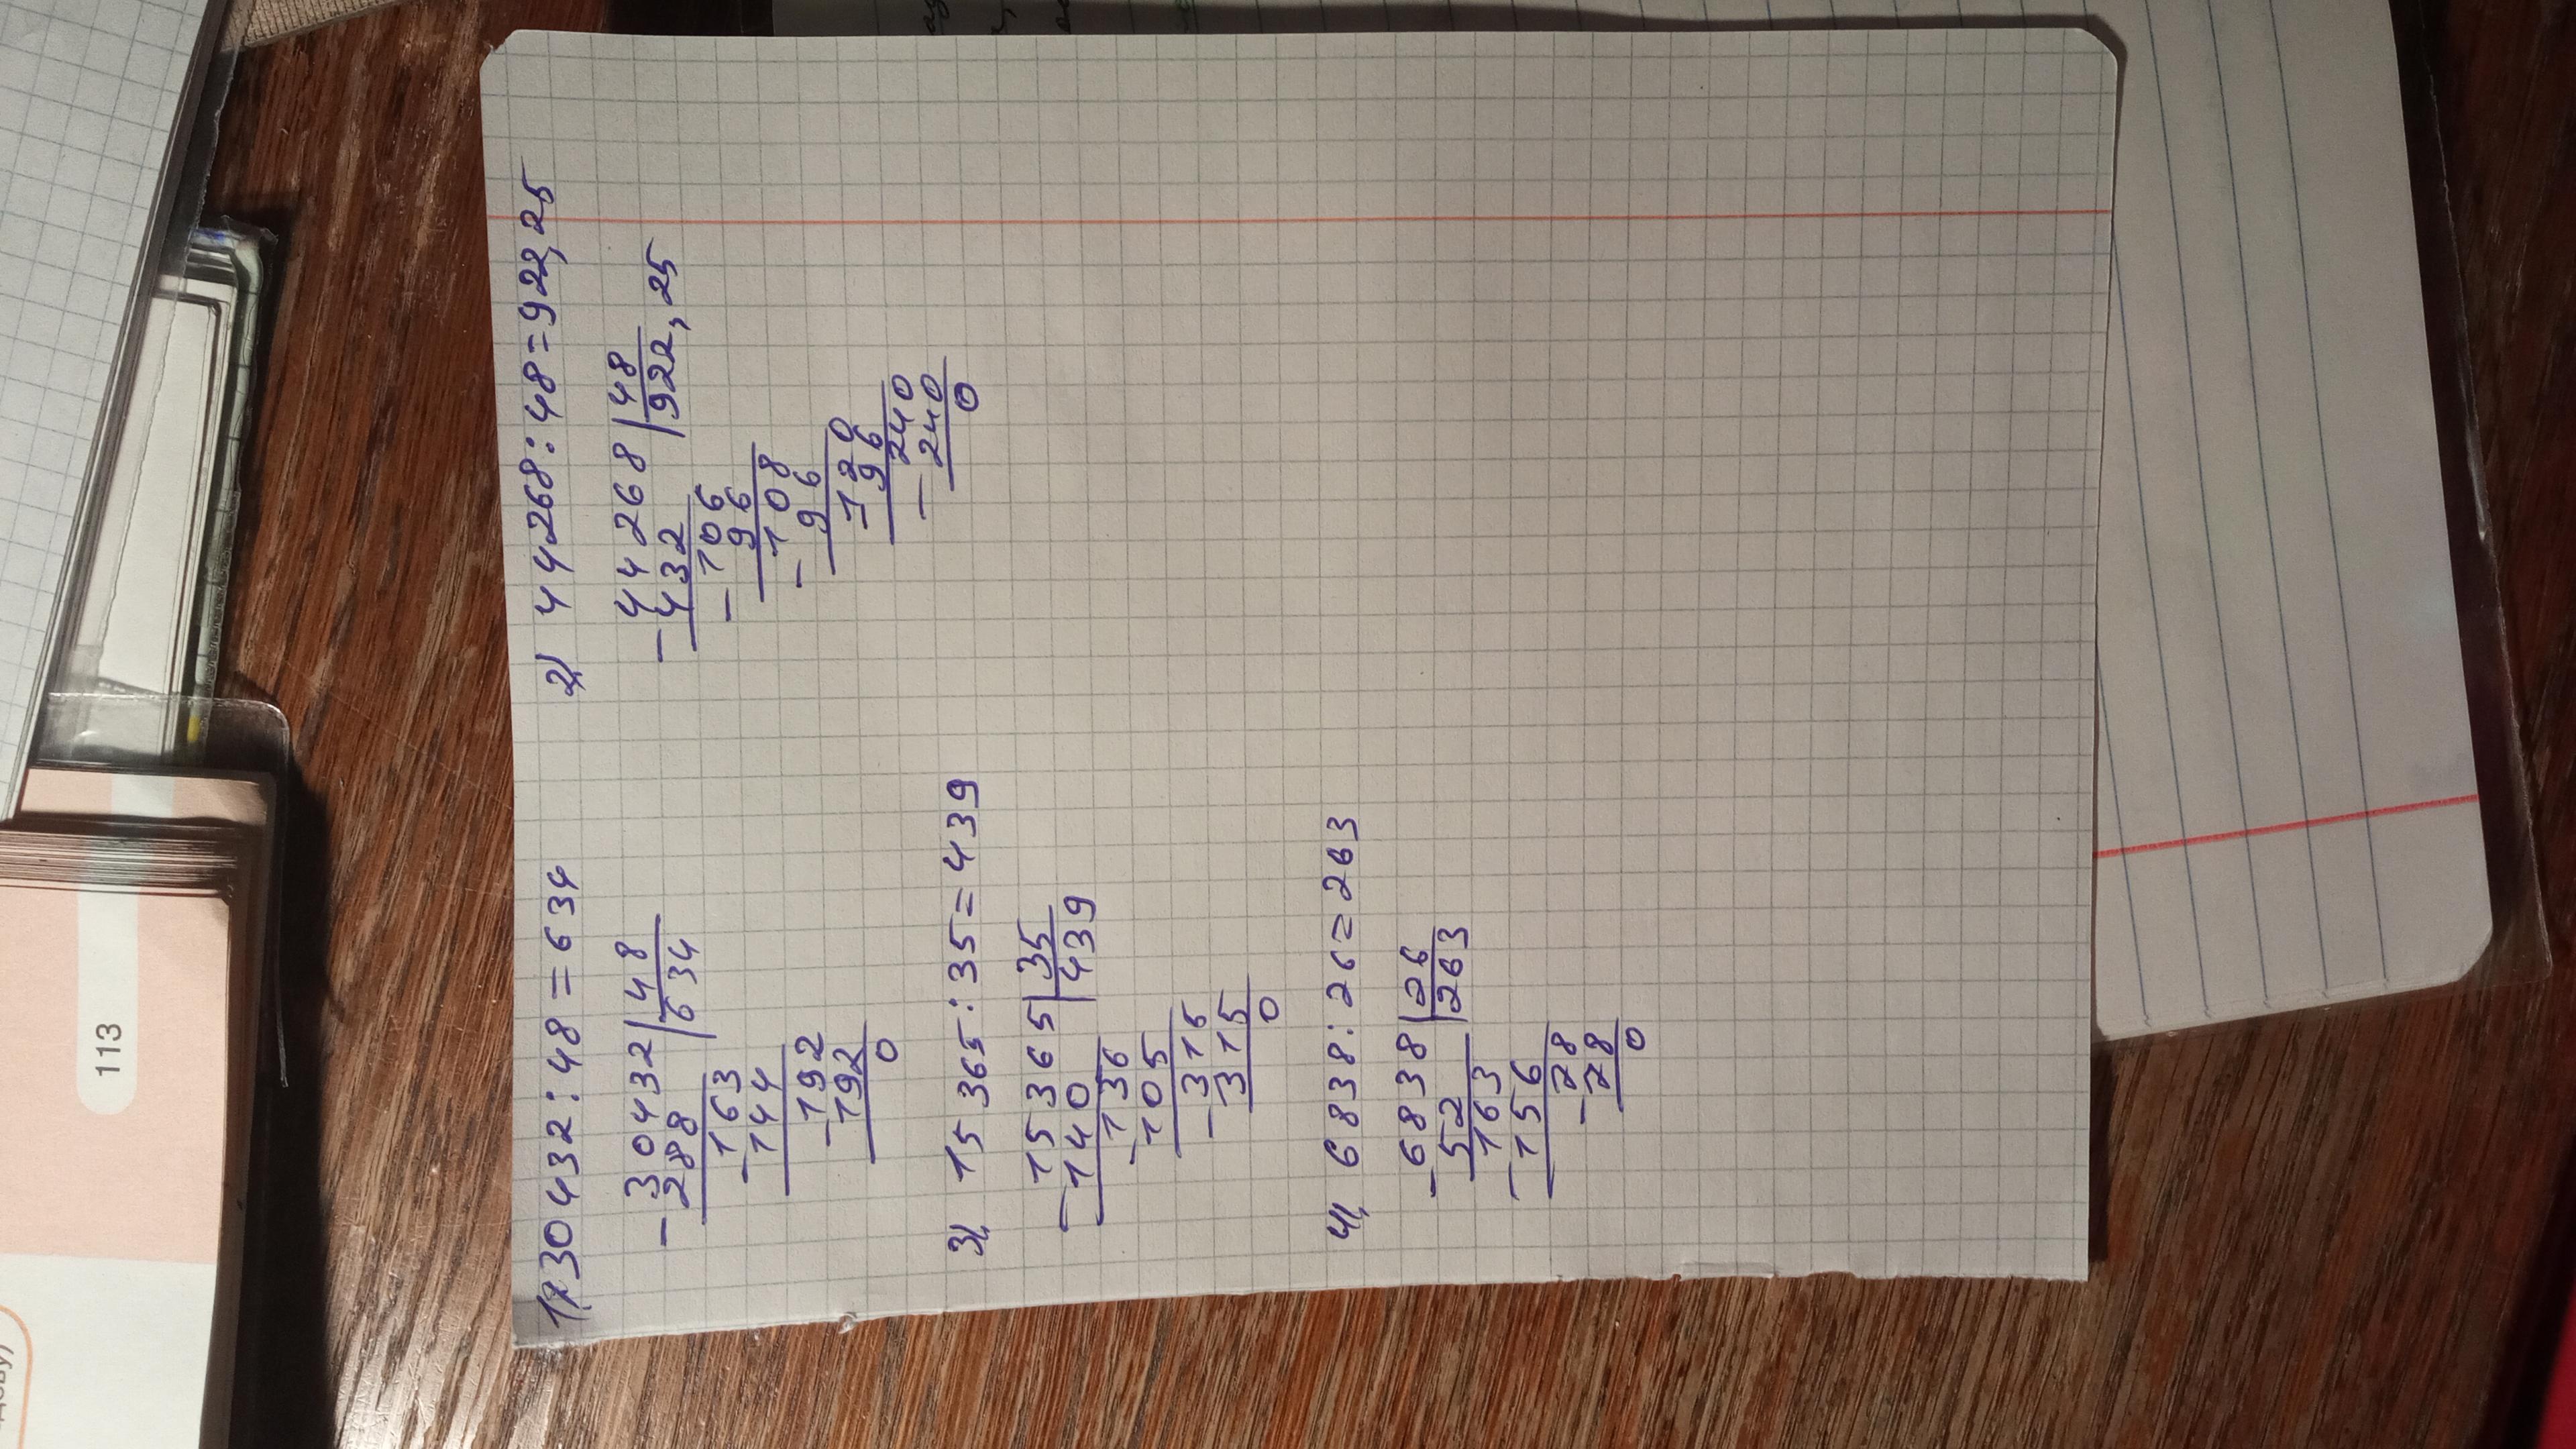 1) 30432:48=634
30432 | 48
288 634
163
144
192
192
0
2) 44268:48=922,25
44268 | 48
432 922,25
106
96
108
96
120
96
240
240
0
3) 15365:35=439
15365 | 35
140 439
136
105
315
315
0
4) 6838:26=263
6838 | 26
52 263
163
156
78
78
0
113